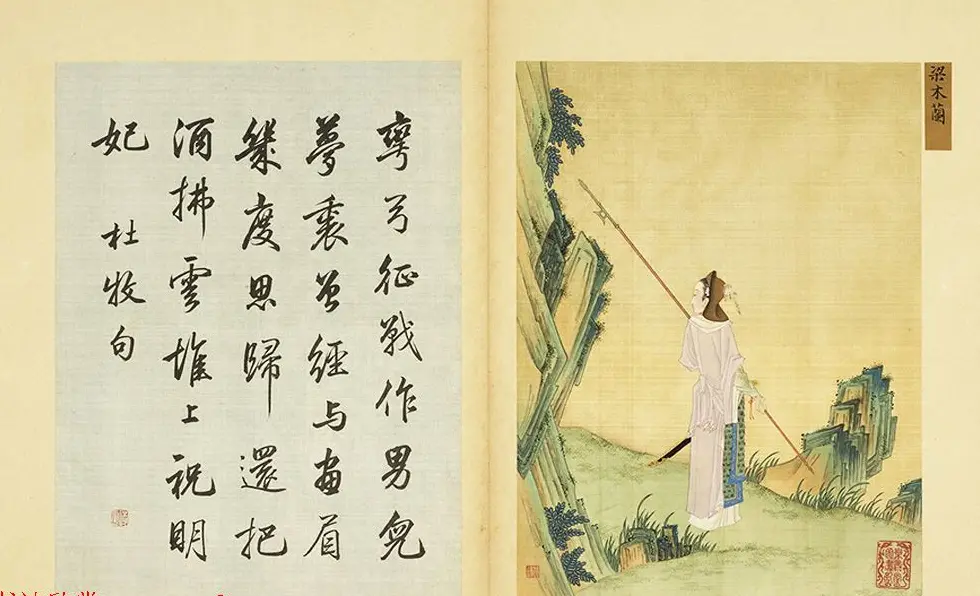 梁木蘭
彎弓征戰作男兒
夢裏曾經与畫眉
幾度思歸還把
酒拂雲堆上祝明
妃
杜牧句